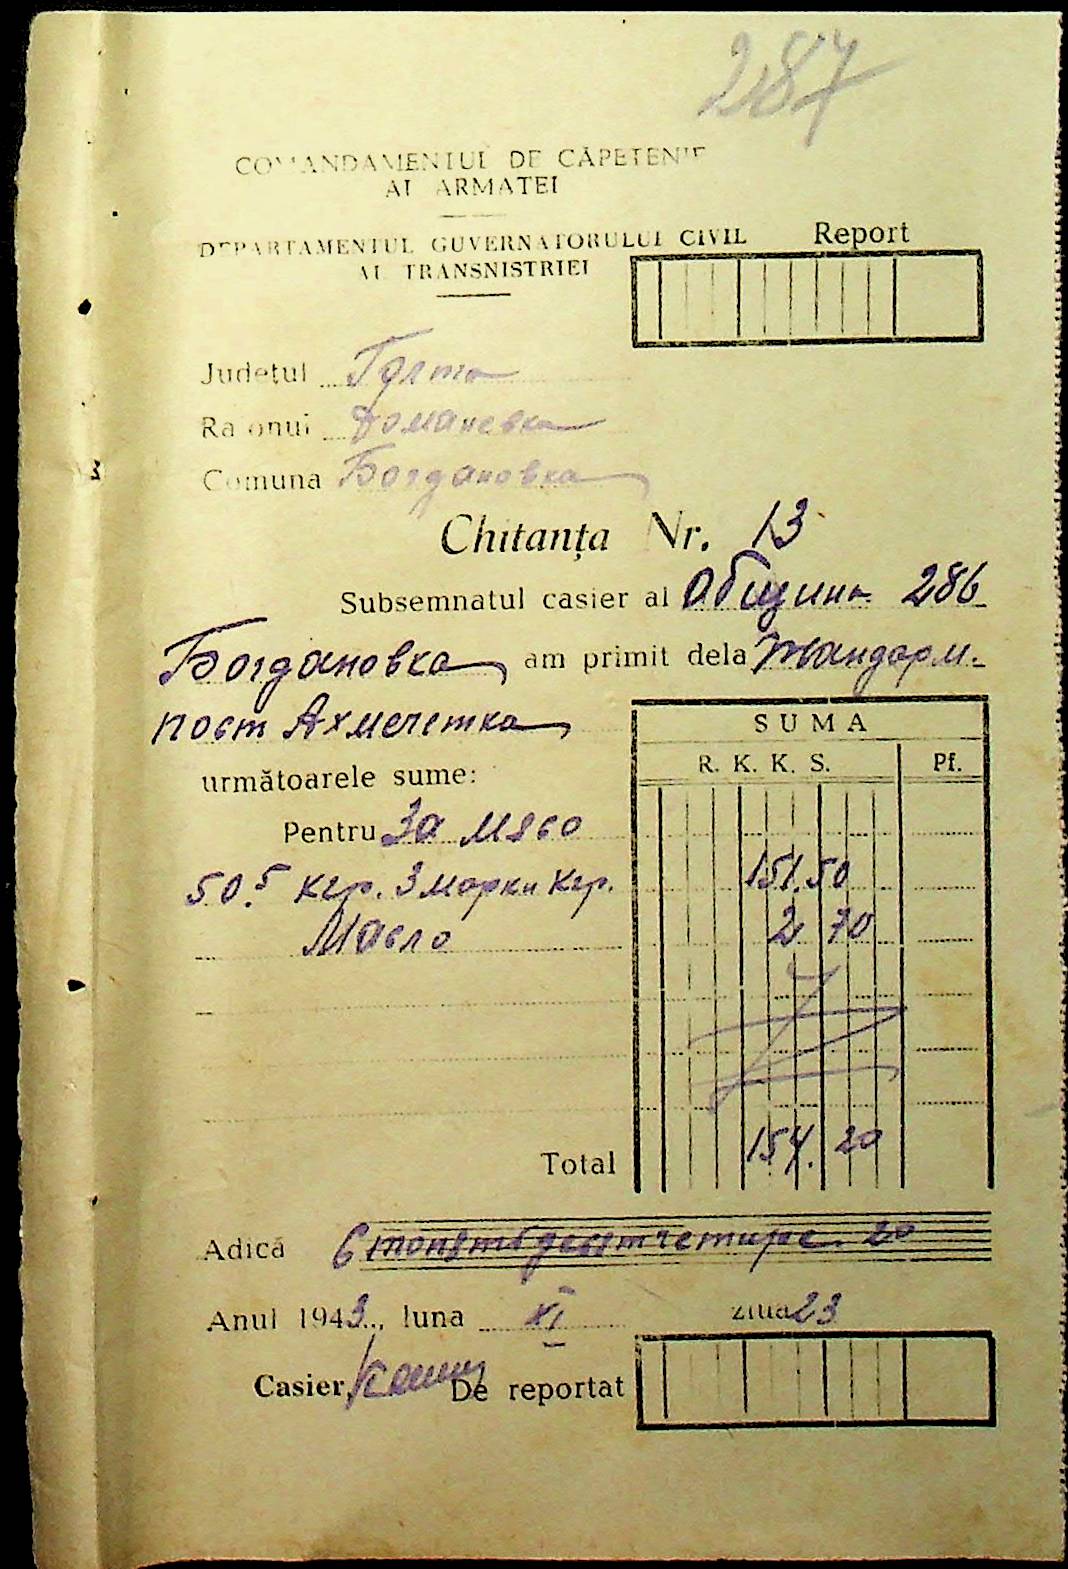 287
COMANDAMENTUL DE CĂPETENIE
AL ARMATEI
DEPARTAMENTUL GUVERNATORULUI CIVIL
AL TRANSNISTRIEI
Report
Județul Голта
Raionul Доманевка
Comuna Богдановка
Chitanța Nr. 13
Subsemnatul casier al Община 286
Богдановка am primit dela Жандарм.
пост Ахмечетка
SUMA
R. K. K. S. Pf.
următoarele sume:
Pentru За мясо
50.5 кгр. 3 марки кгр. 151.50
Масло 2 70
Total 154.20
Adică Стопятьдесятчетире. 20
Anul 1943., luna XI ziua 23
Casier, De reportat